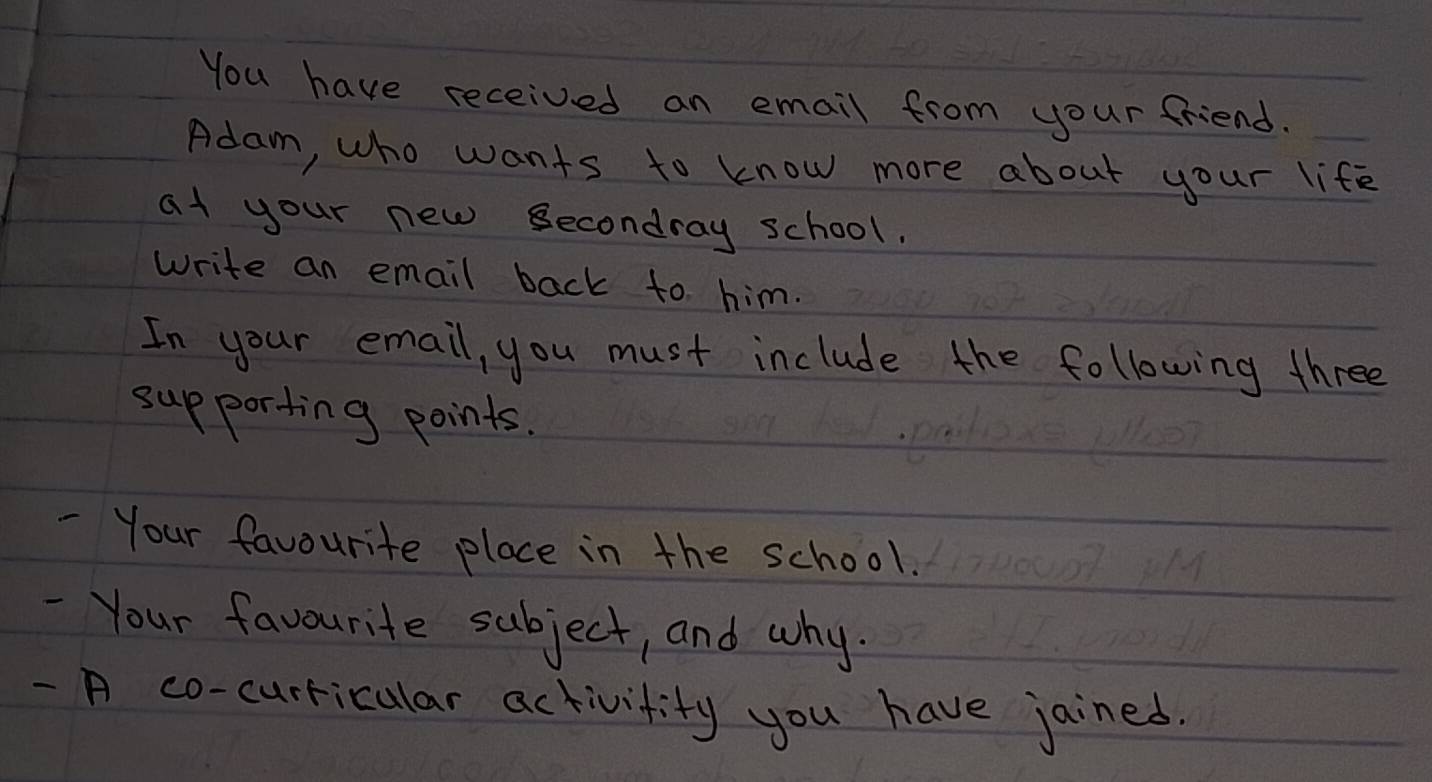 You have received an email from your friend.
Adam, who wants to know more about your life
at your new secondray school.
Write an email back to him.
In your email, you must include the following three
supporting points.
- Your favourite place in the school.
- Your favourite subject, and why.
- A co-curricular activitity you have jained.